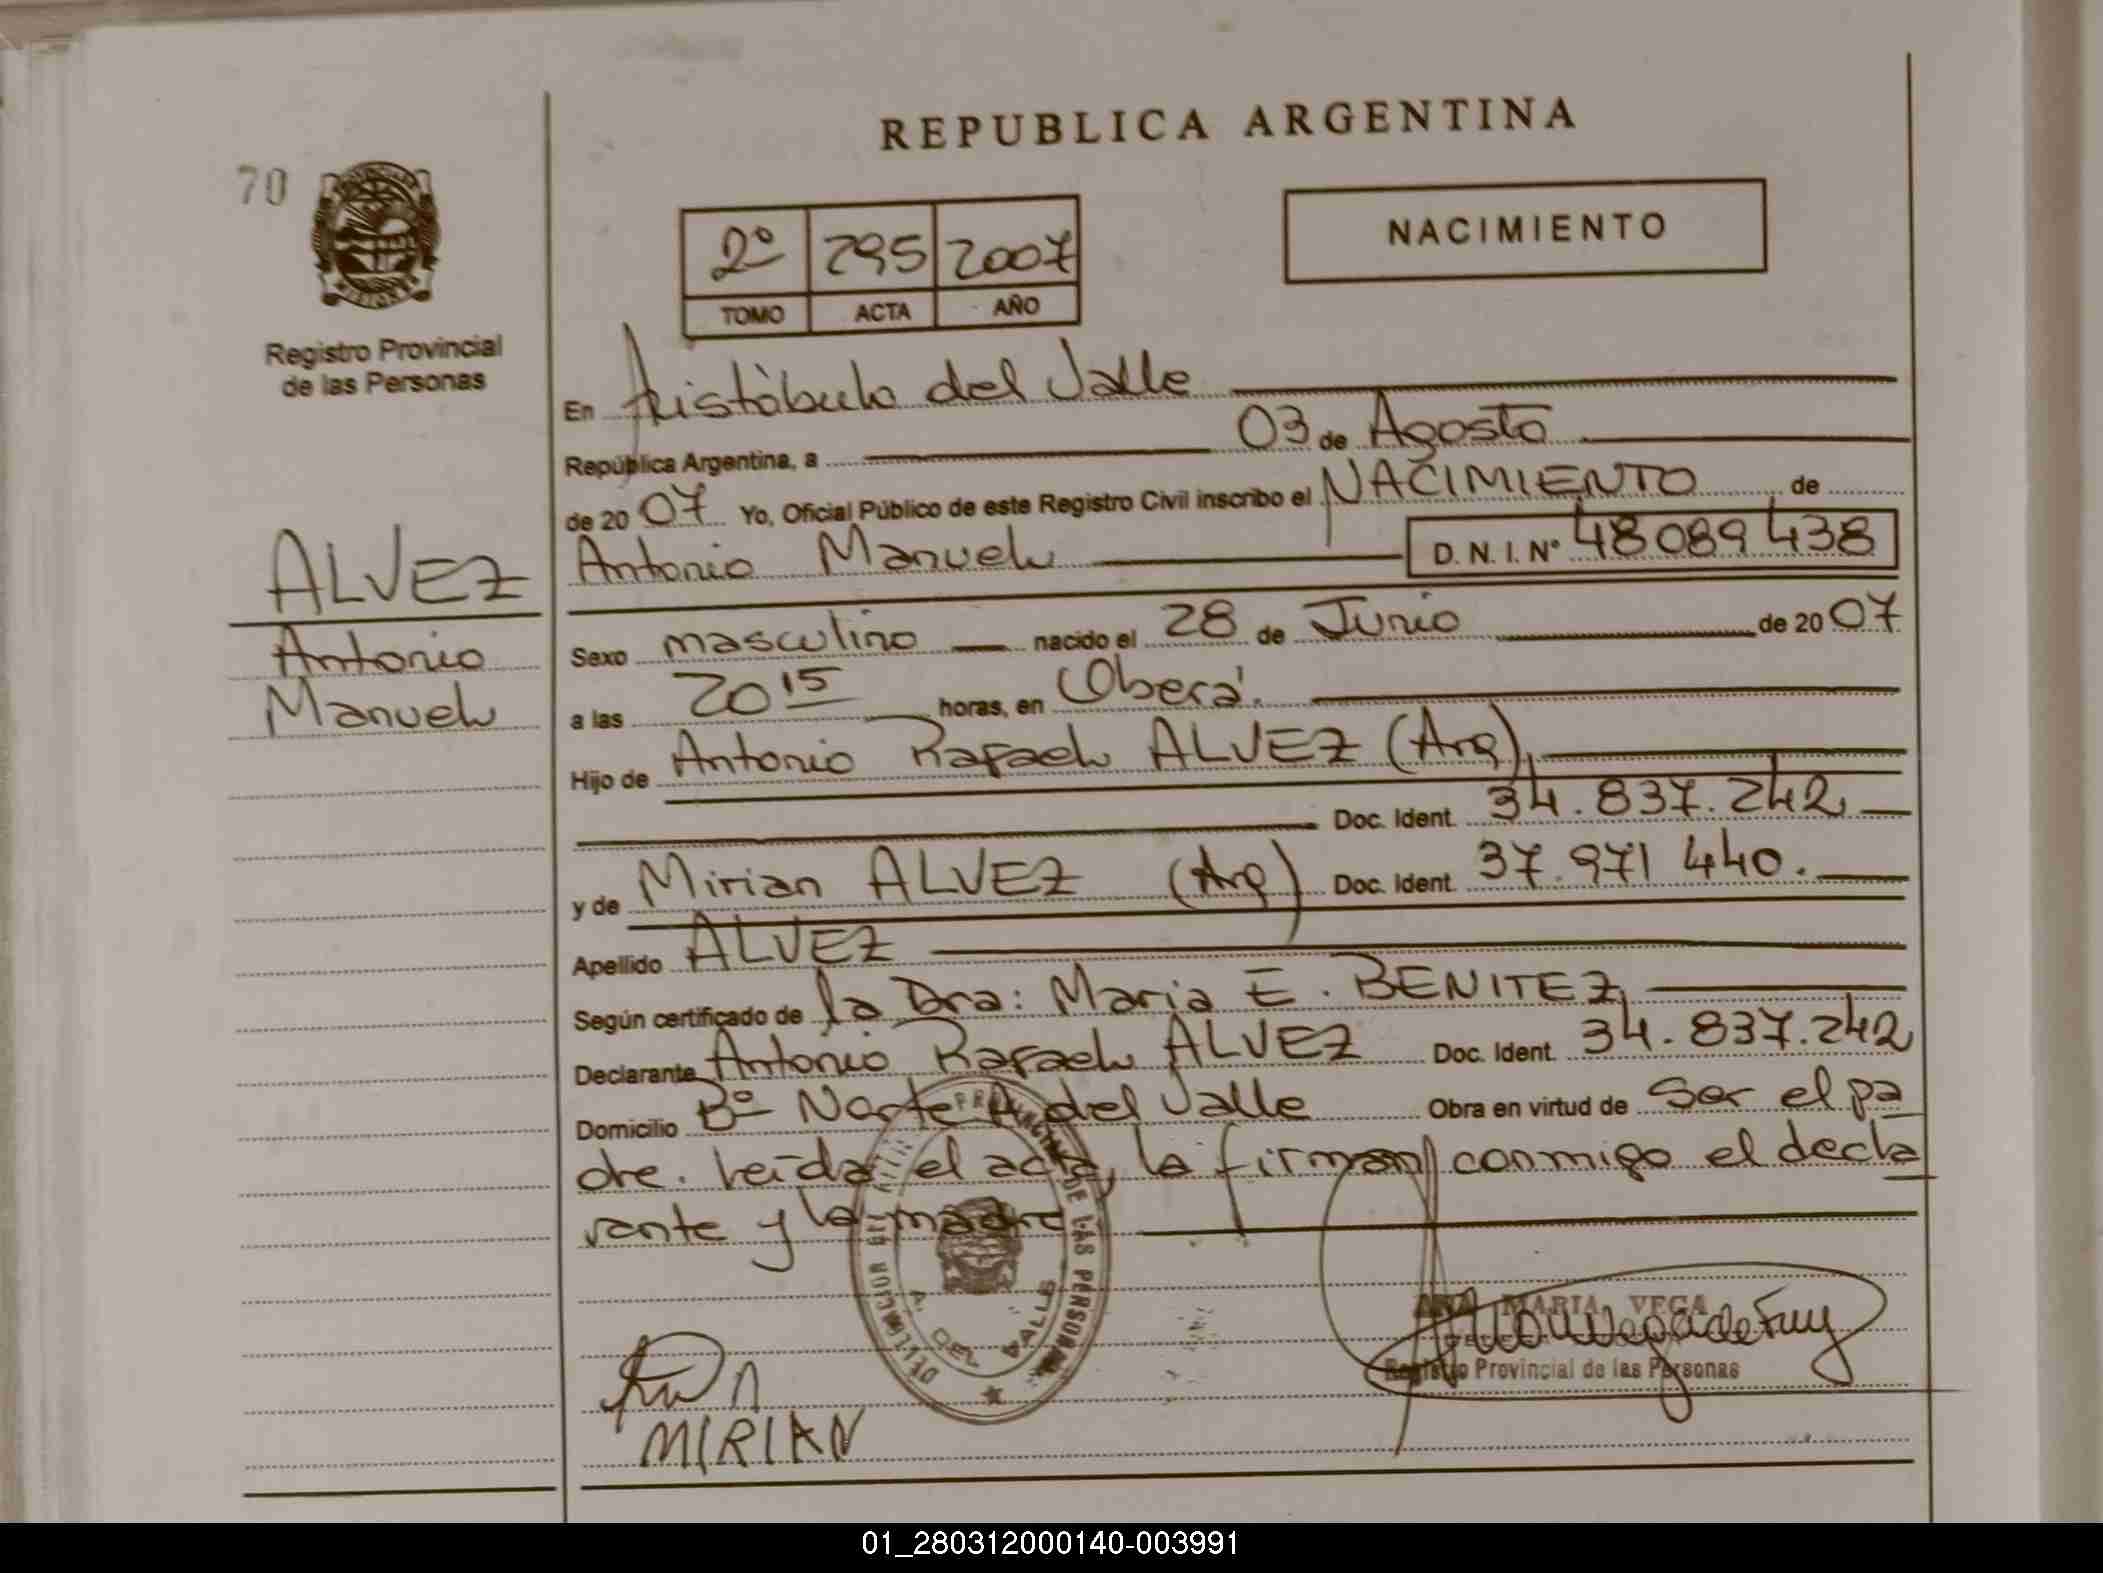 REPUBLICA ARGENTINA
70
NACIMIENTO
2º 295 2007
TOMO ACTA AÑO
Registro Provincial
de las Personas
ALVEZ
Antonio
Manuel
En Aristóbulo del Valle
República Argentina, a 03 de Agosto
de 20 07 Yo, Oficial Público de este Registro Civil inscribo el NACIMIENTO de
Antonio Manuel D. N. I. Nº 48089438
Sexo masculino nacido el 28 de Junio de 20 07
a las 20 15 horas, en Oberá.
Hijo de Antonio Rafael ALVEZ (Arg)
Doc. Ident. 34.837.242
y de Mirian ALVEZ (Arg) Doc. Ident. 37.971 440.
Apellido ALVEZ
Según certificado de la Dra: Maria E. BENITEZ
Declarante Antonio Rafael ALVEZ Doc. Ident. 34.837.242
Domicilio Bº Norte A del Valle Obra en virtud de Ser el pa
dre. Leída el acta, la firman conmigo el decla
rante y la madre
PROVINCIAL DE LAS PERSONAS
A. DEL VALLE
ANA MARIA VEGA
Registro Provincial de las Personas
MIRIAN
01_280312000140-003991